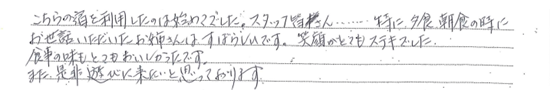 こちらの宿を利用したのは始めてでした。スタッフ皆様さん……… 特に、夕食、朝食の時に
お世話いただいたお姉さんはすばらしいです。笑顔がとてもステキでした。
食事の味もとてもおいしかったです。
また、是非遊びに来たいと思っております。